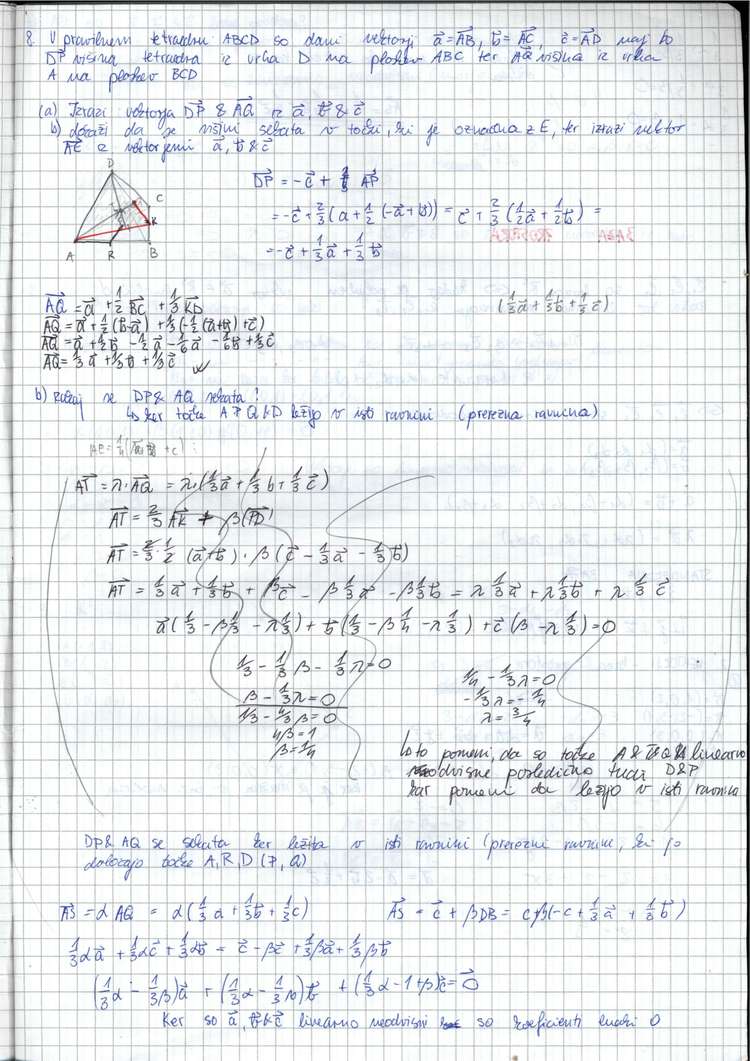 8. V pravilnem tetraedru ABCD so dani vektorji a⃗=AB⃗, b⃗=AC⃗, c⃗=AD⃗ naj bo
DP⃗ višina tetraedra iz vrha D na ploskev ABC ter AQ⃗ višina iz vrha
A na ploskev BCD
(a) Izrazi vektorja DP⃗ & AQ⃗ z a⃗, b⃗ & c⃗
b) dokaži da se višini sekata v točki, ki je označena z E, ter izrazi vektor
AE⃗ z vektorjemi a⃗, b⃗ & c⃗
D
C
K
A
R
B
DP⃗ = -c⃗ + 2/3 AP⃗
= -c⃗ + 2/3 (a + 1/2 (-a⃗ + b⃗)) = c⃗ + 2/3 (1/2 a⃗ + 1/2 b⃗) =
= -c⃗ + 1/3 a⃗ + 1/3 b⃗
AQ⃗ = a⃗ + 1/2 BC⃗ + 1/3 KD⃗
(1/3 a⃗ + 1/3 b⃗ + 1/3 c⃗)
AQ⃗ = a⃗ + 1/2 (b⃗-a⃗) + 1/3 (-1/2 (a⃗+b⃗) + c⃗)
AQ⃗ = a⃗ + 1/2 b⃗ - 1/2 a⃗ - 1/6 a⃗ - 1/6 b⃗ + 1/3 c⃗
AQ⃗ = 1/3 a⃗ + 1/3 b⃗ + 1/3 c⃗ ✓
b) zakaj se DP & AQ sekata?
↳ ker točke A P Q & D ležijo v isti ravnini (prerezna ravnina)
AT⃗ = λ·AQ⃗ = λ·(1/3 a⃗ + 1/3 b + 1/3 c⃗)
AT⃗ = 2/3 AK⃗ + β(PD⃗)
AT⃗ = 2/3 · 1/2 (a⃗+b⃗) · β (c⃗ - 1/3 a⃗ - 1/3 b⃗)
AT⃗ = 1/3 a⃗ + 1/3 b⃗ + βc⃗ - β 1/3 a⃗ - β 1/3 b⃗ = λ 1/3 a⃗ + λ 1/3 b⃗ + λ 1/3 c⃗
a⃗ (1/3 - β 1/3 - λ 1/3) + b⃗ (1/3 - β 1/4 - λ 1/3) + c⃗ (β - λ 1/3) = 0
1/3 - 1/3 β - 1/3 λ = 0
β - 1/3 λ = 0
1/3 - 4/3 β = 0
4β = 1
β = 1/4
1/4 - 1/3 λ = 0
- 1/3 λ = - 1/4
λ = 3/4
↳ to pomeni, da so točke A & Q linearno
odvisne posledično tudi D & P
kar pomeni da ležijo v isti ravnini
DP & AQ se sekata ker ležita v isti ravnini (prerezni ravnini, ki jo
določajo točke A, R, D (P, Q)
AS⃗ = α AQ = α (1/3 a + 1/3 b + 1/3 c)
AS⃗ = c⃗ + β DB = c + β(-c + 1/3 a⃗ + 1/3 b⃗)
1/3 αa⃗ + 1/3 αc⃗ + 1/3 αb⃗ = c⃗ - βc⃗ + 1/3 βa⃗ + 1/3 βb⃗
(1/3 α - 1/3 β) a⃗ + (1/3 α - 1/3 β) b⃗ + (1/3 α - 1 + β) c⃗ = 0⃗
Ker so a⃗, b⃗ & c⃗ linearno neodvisni so koeficienti enaki 0